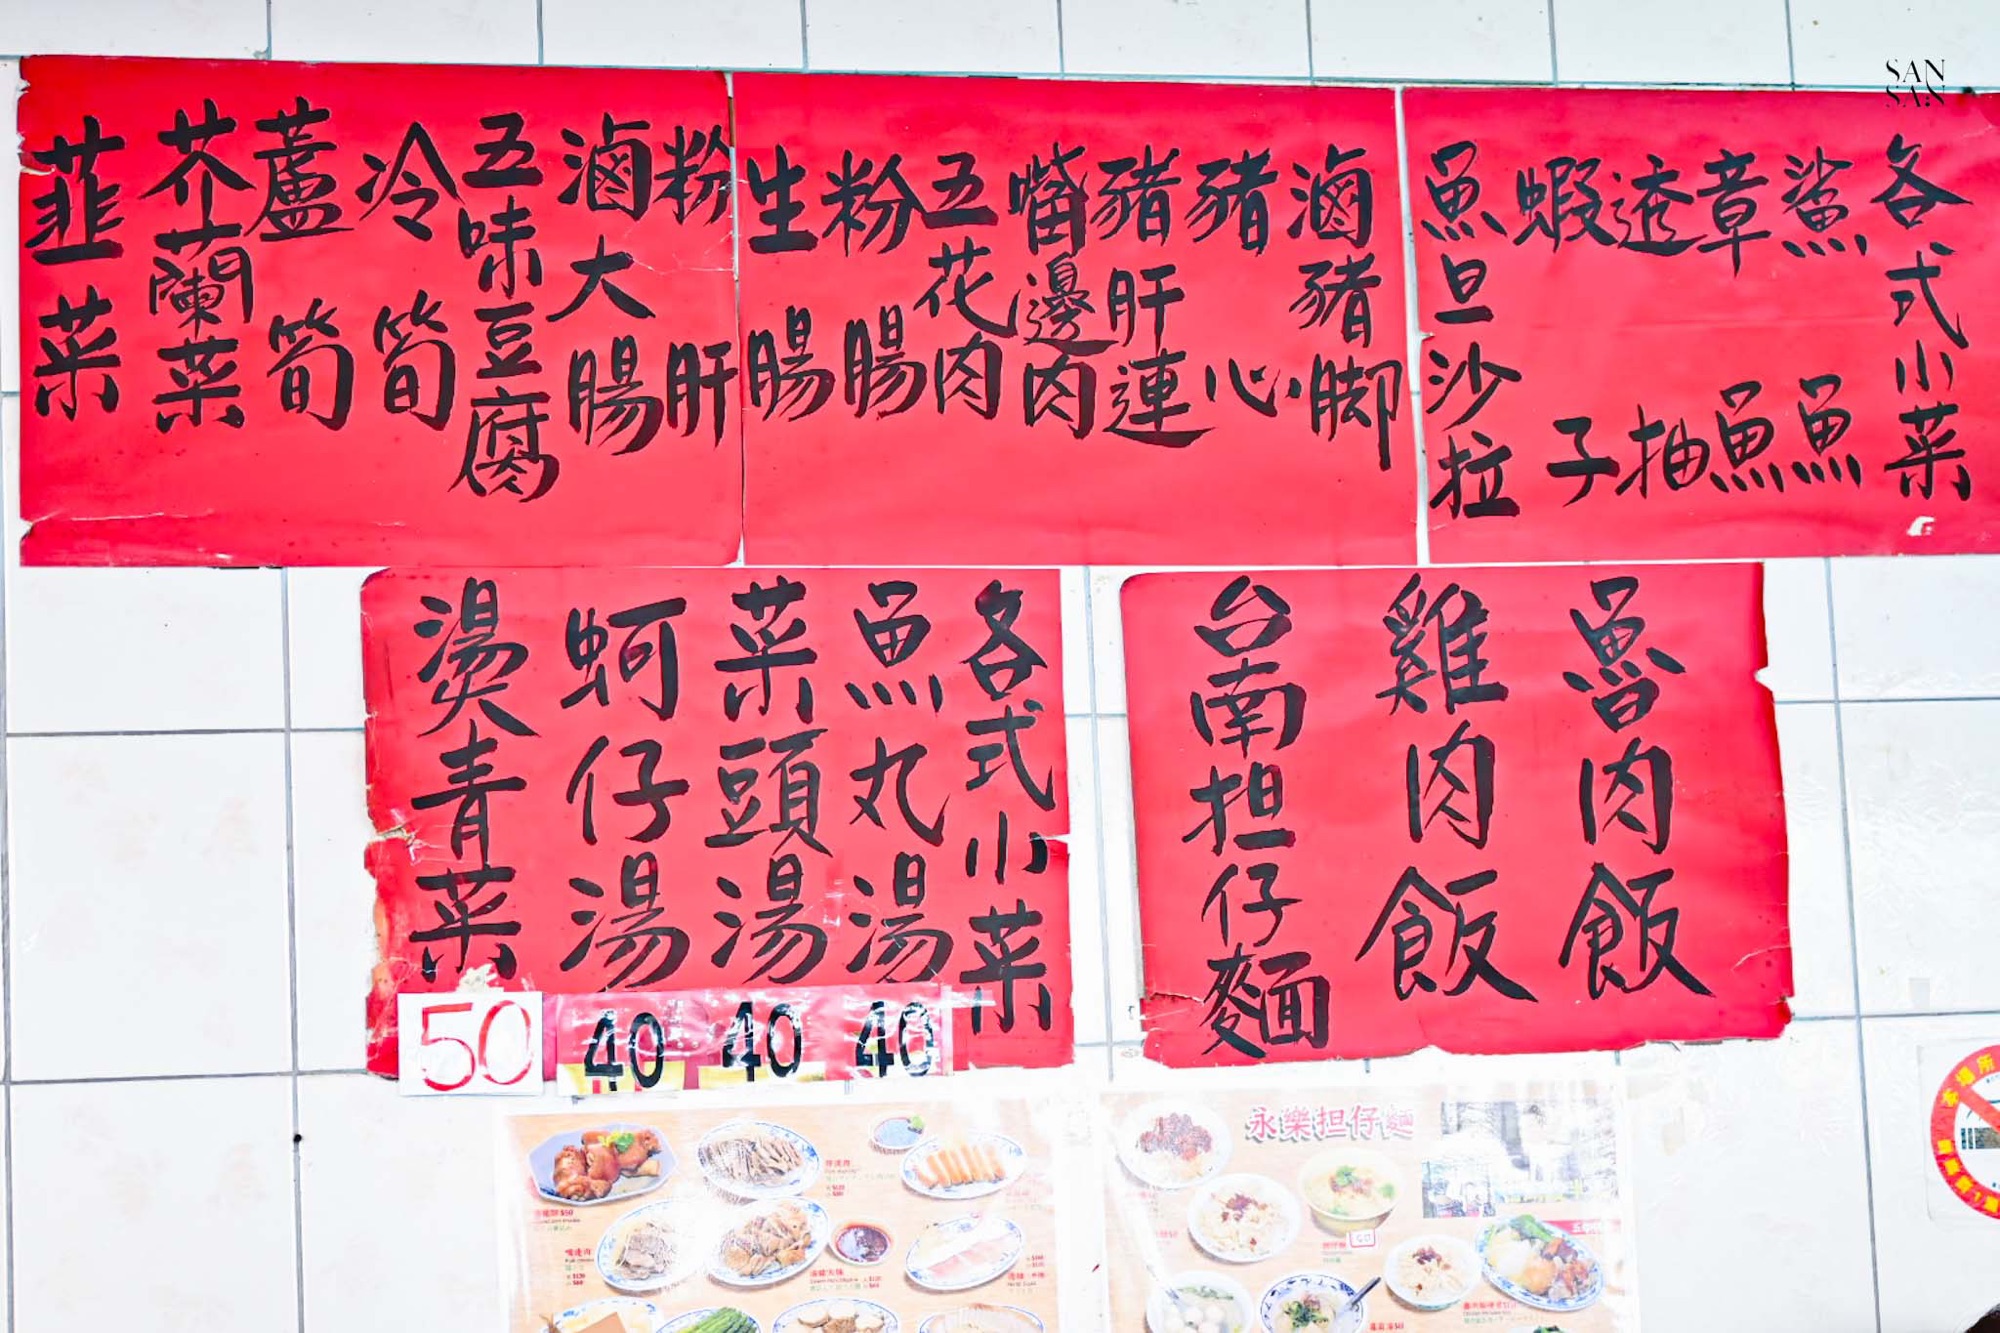 SAN
SAN
各式小菜
鯊魚
章魚
透抽
蝦子
魚旦沙拉
滷豬脚
豬心
豬肝連
嘴邊肉
五花肉
粉腸
生腸
粉肝
滷大腸
五味豆腐
冷筍
蘆筍
芥蘭菜
韮菜
魯肉飯
雞肉飯
台南担仔麵
各式小菜
魚丸湯
40
菜頭湯
40
蚵仔湯
40
燙青菜
50
永樂担仔麵
嘴邊肉